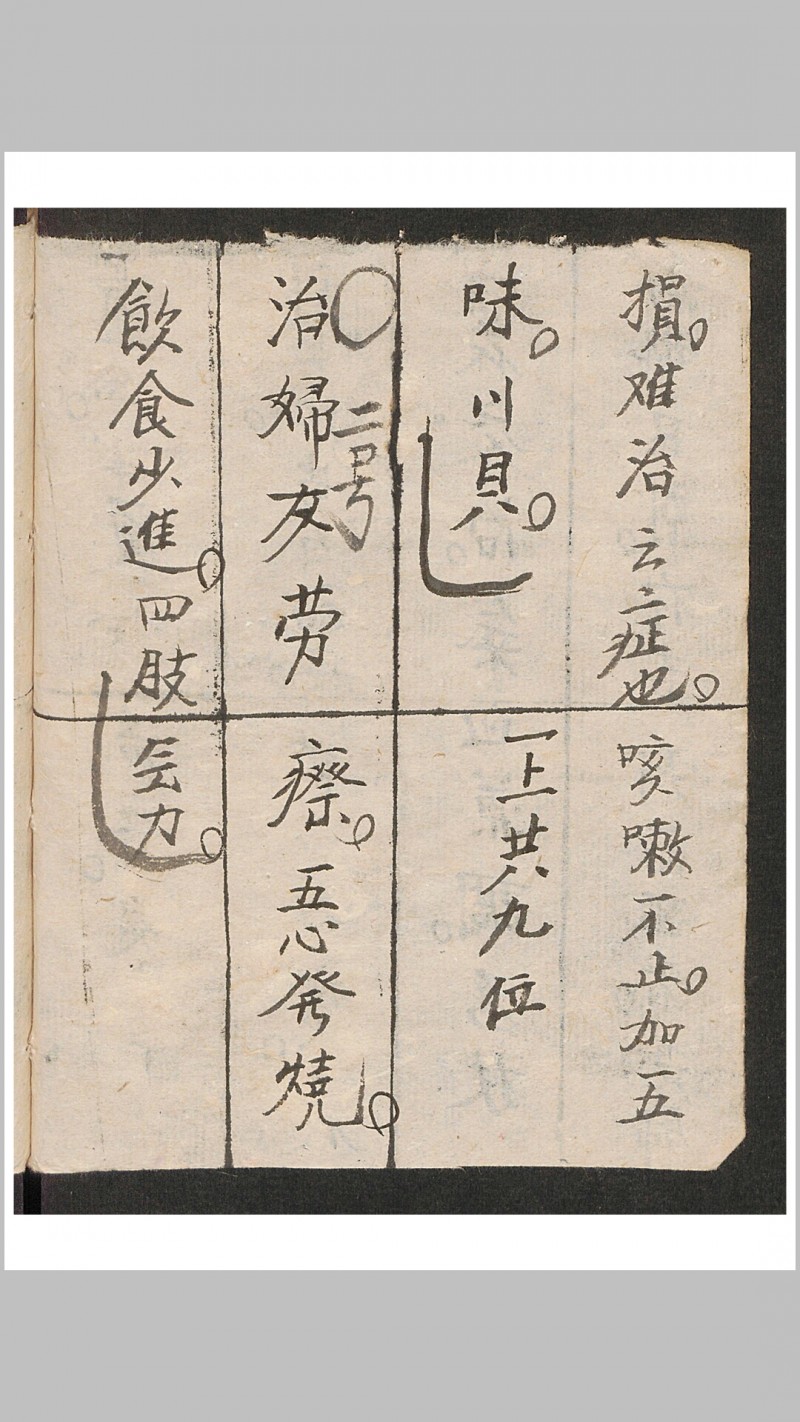 損。难治云云症也。咳嗽不止。加五
味。川貝。一上共九位
〇二号
治婦女劳瘵。五心発燒。
飲食少進。四肢乏力。